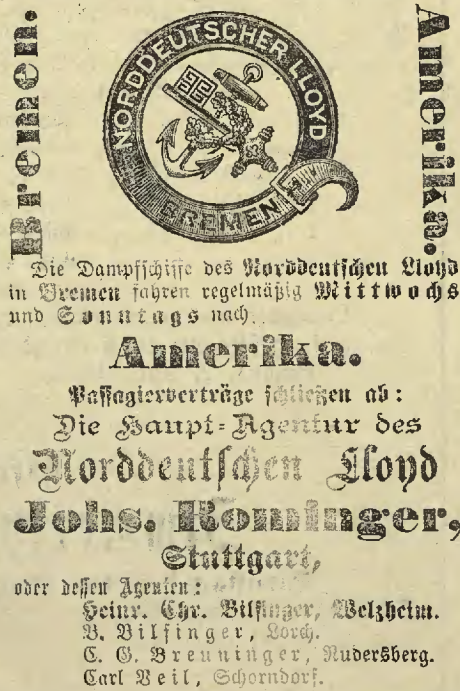 Bremen.
Amerika.
NORDDEUTSCHER LLOYD
BREMEN
Die Dampfschiffe des Norddeutschen Lloyd
in Bremen fahren regelmäßig Mittwochs
und Sonntags nach
Amerika.
Passagierverträge schließen ab:
Die Haupt-Agentur des
Norddeutschen Lloyd
Johs. Rominger,
Stuttgart,
oder dessen Agenten:
Heinr. Chr. Bilfinger, Welzheim.
B. Bilfinger, Lorch.
C. G. Breuninger, Rudersberg.
Carl Veil, Schorndorf.